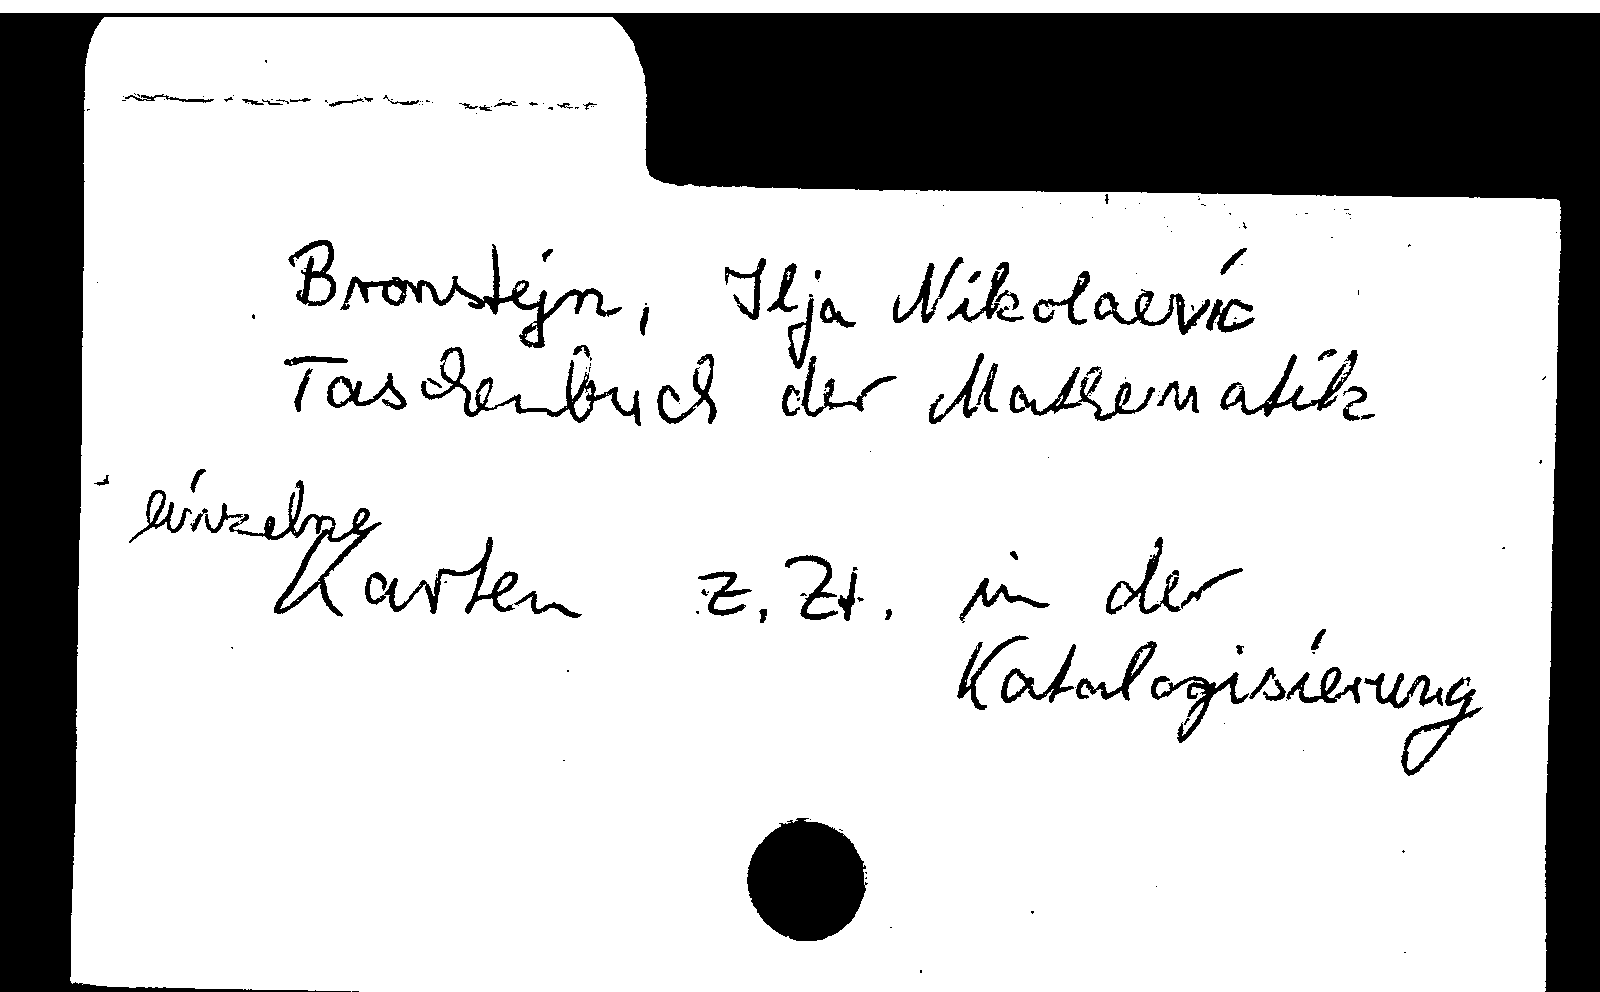 Bronstejn, Ilja Nikolaevic
Taschenbuch der Mathematik
einzelne
Karten z. Zt. in der
Katalogisierung